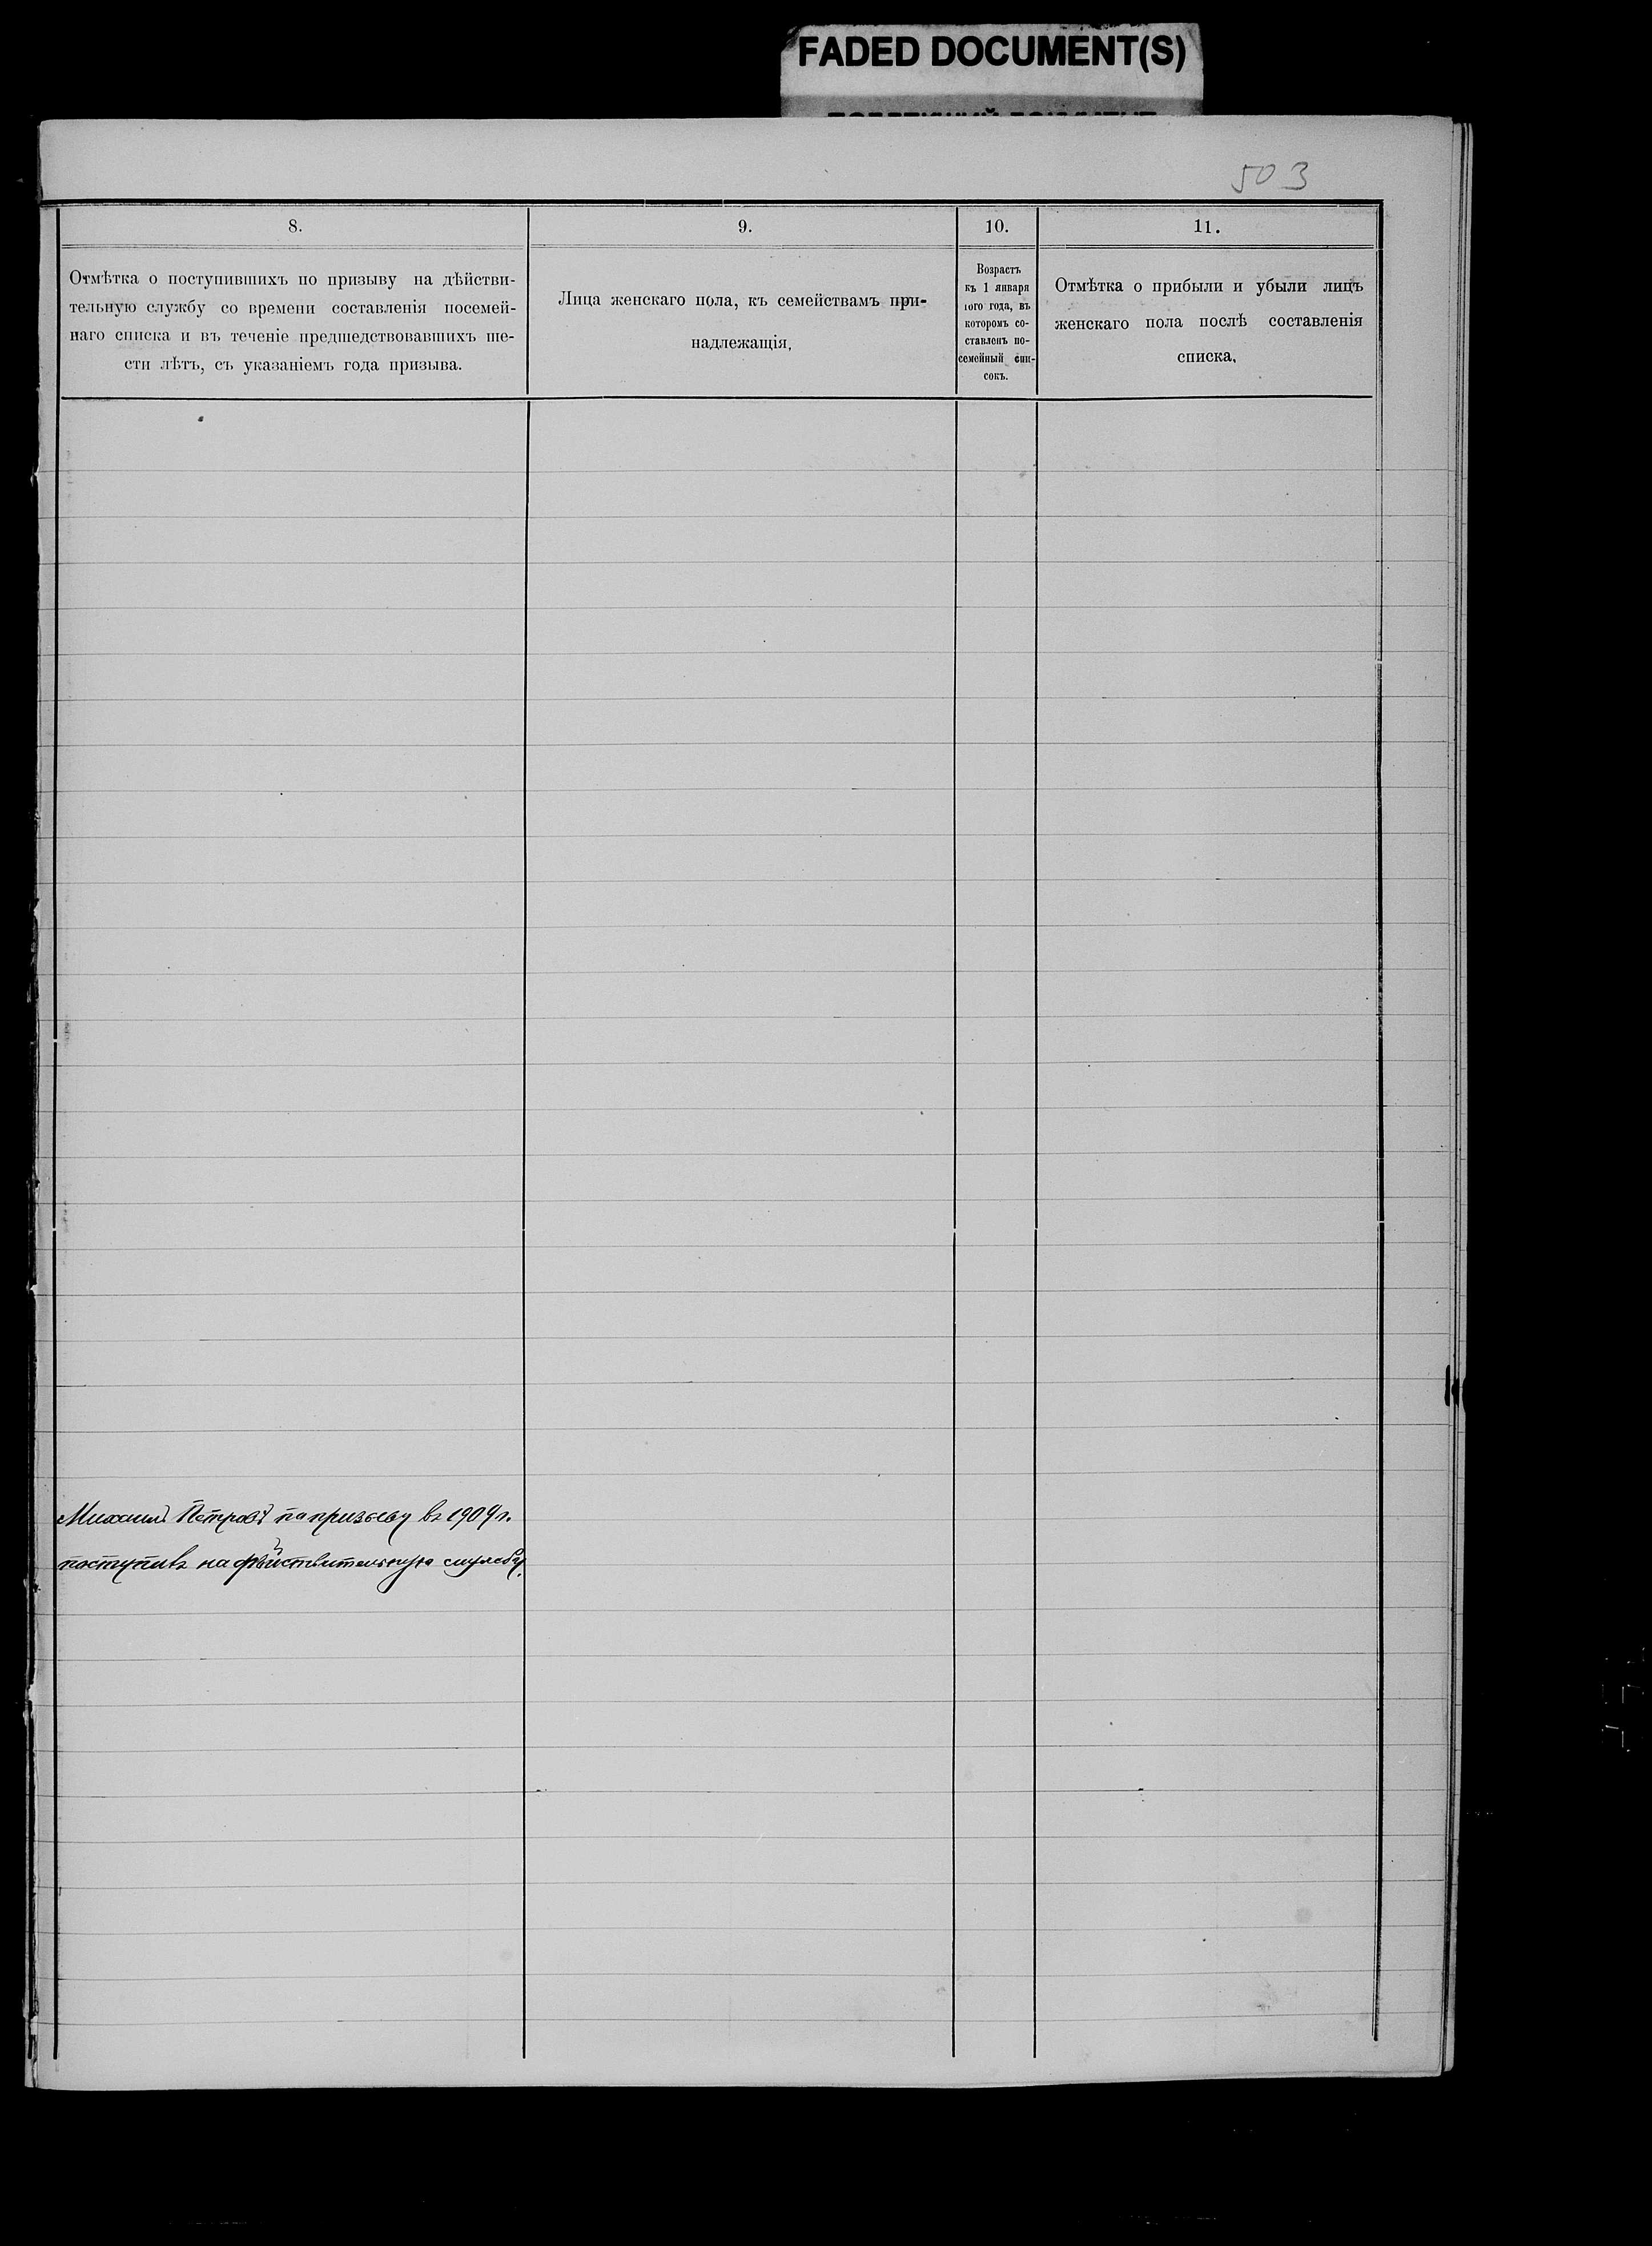 FADED DOCUMENT(S)
503
8.
9.
10.
11.
Отмѣтка о поступившихъ по призыву на дѣйстви-
тельную службу со времени составленія посемей-
наго списка и въ теченіе предшедствовавшихъ ше-
сти лѣтъ, съ указаніемъ года призыва.
Лица женскаго пола, къ семействамъ при-
надлежащія,
Возрастъ
къ 1 января
того года, въ
которомъ со-
ставленъ по-
семейный спи-
сокъ.
Отмѣтка о прибыли и убыли лицъ
женскаго пола послѣ составленія
списка,
Михаилъ Петровъ по призыву въ 1909 г.
поступилъ на дѣйствительную службу.